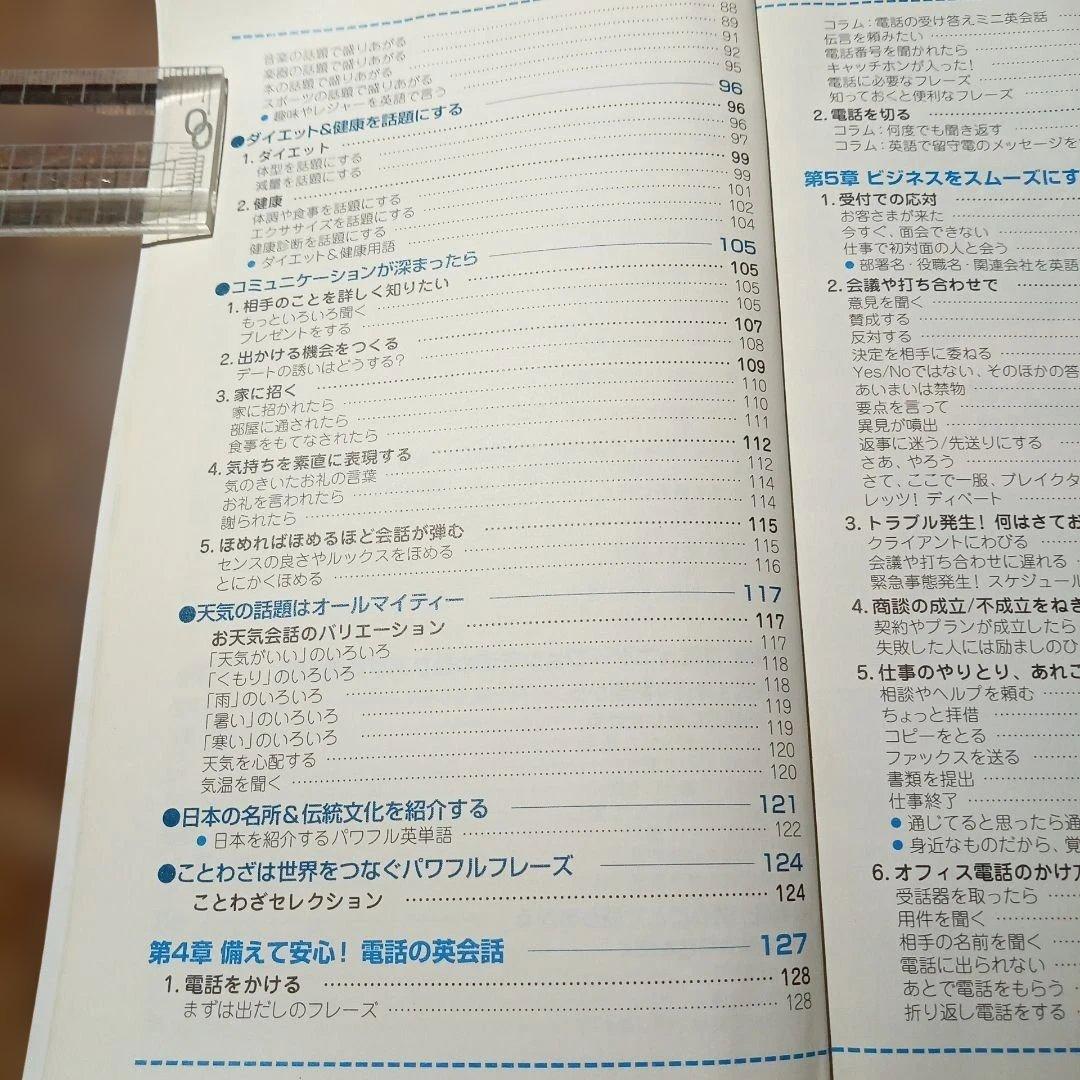 88
音楽の話題で盛りあがる 89
楽器の話題で盛りあがる 91
本の話題で盛りあがる 92
スポーツの話題で盛りあがる 95
●趣味やレジャーを英語で言う
●ダイエット&健康を話題にする 96
1. ダイエット 96
体型を話題にする 96
減量を話題にする 97
2. 健康 99
体調や食事を話題にする 99
エクササイズを話題にする 101
健康診断を話題にする 102
●ダイエット&健康用語 104
●コミュニケーションが深まったら 105
1. 相手のことを詳しく知りたい 105
もっといろいろ聞く 105
プレゼントをする 105
2. 出かける機会をつくる 107
デートの誘いはどうする? 108
3. 家に招く 109
家に招かれたら 110
部屋に通されたら 110
食事をもてなされたら 111
4. 気持ちを素直に表現する 112
気のきいたお礼の言葉 112
お礼を言われたら 114
謝られたら 114
5. ほめればほめるほど会話が弾む 115
センスの良さやルックスをほめる 115
とにかくほめる 116
●天気の話題はオールマイティー 117
お天気会話のバリエーション 117
「天気がいい」のいろいろ 117
「くもり」のいろいろ 118
「雨」のいろいろ 118
「暑い」のいろいろ 119
「寒い」のいろいろ 119
天気を心配する 120
気温を聞く 120
●日本の名所&伝統文化を紹介する 121
●日本を紹介するパワフル英単語 122
●ことわざは世界をつなぐパワフルフレーズ 124
ことわざセレクション 124
第4章 備えて安心! 電話の英会話 127
1. 電話をかける 128
まずは出だしのフレーズ 128
コラム:電話の受け答えミニ英会話
伝言を頼みたい
電話番号を聞かれたら
キャッチホンが入った!
電話に必要なフレーズ
知っておくと便利なフレーズ
2. 電話を切る
コラム:何度でも聞き返す
コラム:英語で留守電のメッセージを
第5章 ビジネスをスムーズにす
1. 受付での応対
お客さまが来た
今すぐ、面会できない
仕事で初対面の人と会う
●部署名・役職名・関連会社を英語
2. 会議や打ち合わせで
意見を聞く
賛成する
反対する
決定を相手に委ねる
Yes/Noではない、そのほかの答
あいまいは禁物
要点を言って
異見が噴出
返事に迷う/先送りにする
さあ、やろう
さて、ここで一服、ブレイクタ
レッツ! ディベート
3. トラブル発生! 何はさてお
クライアントにわびる
会議や打ち合わせに遅れる
緊急事態発生! スケジュール
4. 商談の成立/不成立をねぎ
契約やプランが成立したら
失敗した人には励ましのひ
5. 仕事のやりとり、あれこ
相談やヘルプを頼む
ちょっと拝借
コピーをとる
ファックスを送る
書類を提出
仕事終了
●通じてると思ったら通
●身近なものだから、覚
6. オフィス電話のかけ方
受話器を取ったら
用件を聞く
相手の名前を聞く
電話に出られない
あとで電話をもらう
折り返し電話をする